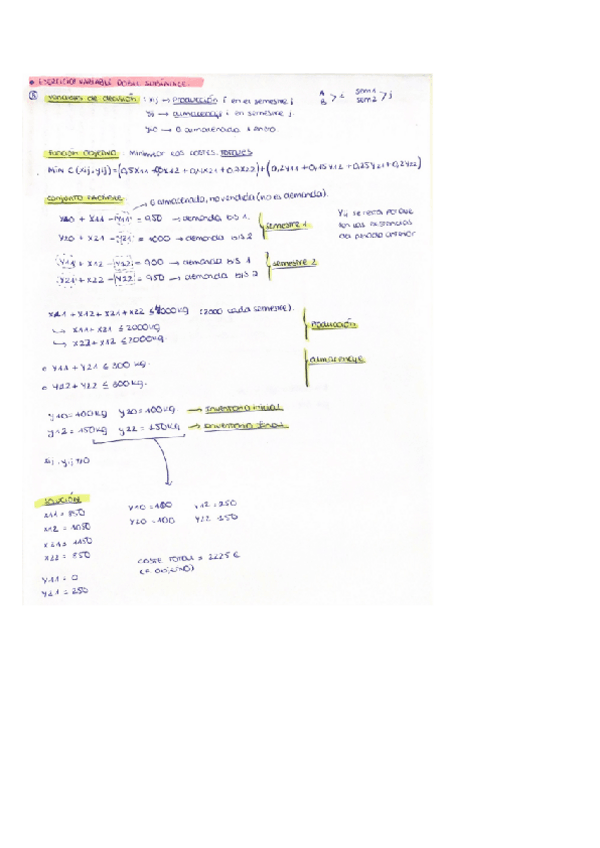 EJERCICIO VARIABLE DOBLE SUBÍNDICE.
variables de decisión: xij → producción i en el semestre j
yij → almacenaje i en semestre j.
A B > i sem 1 sem 2 > j
función objetivo: Minimizar los costes totales
conjunto factible
→ almacenado, no vendido (no es demanda).
y10 + x11 - y11 = 950 → demanda bis 1.
y20 + x21 - y21 = 1000 → demanda bis 2
semestre 1
y11 + x12 - y12 = 900 → demanda bis 1
y21 + x22 - y22 = 950 → demanda bis 2
semestre 2
Yij se resta porque
son las existencias
del periodo anterior
x11 + x12 + x21 + x22 ≤ 4000kg (2000 cada semestre).
↳ x11 + x21 ≤ 2000kg
↳ x22 + x12 ≤ 2000kg
Producción
• y11 + y21 ≤ 300 kg.
• y12 + y22 ≤ 300 kg.
almacenaje
y10 = 100kg y20 = 100kg → Inventario inicial
y12 = 150kg y22 = 150kg → Inventario final
SOLUCIÓN
x11 = 850
x12 = 1050
x21 = 1150
x22 = 850
y10 = 100
y20 = 100
y22 150
y11 = 0
y21 = 250
COSTE TOTAL = 2225 €